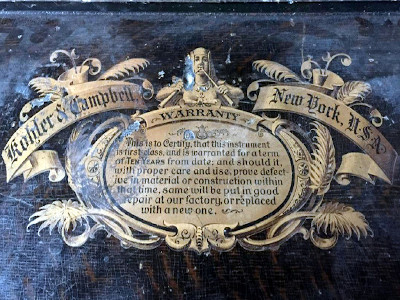 Kohler & Campbell,
New York, U.S.A.
WARRANTY
This is to Certify, that this instrument
is first class, and is warranted for a term
of TEN YEARS from date; and should it
with proper care and use, prove defect-
ive in material or construction within
that time, same will be put in good
repair at our factory, or replaced
with a new one.